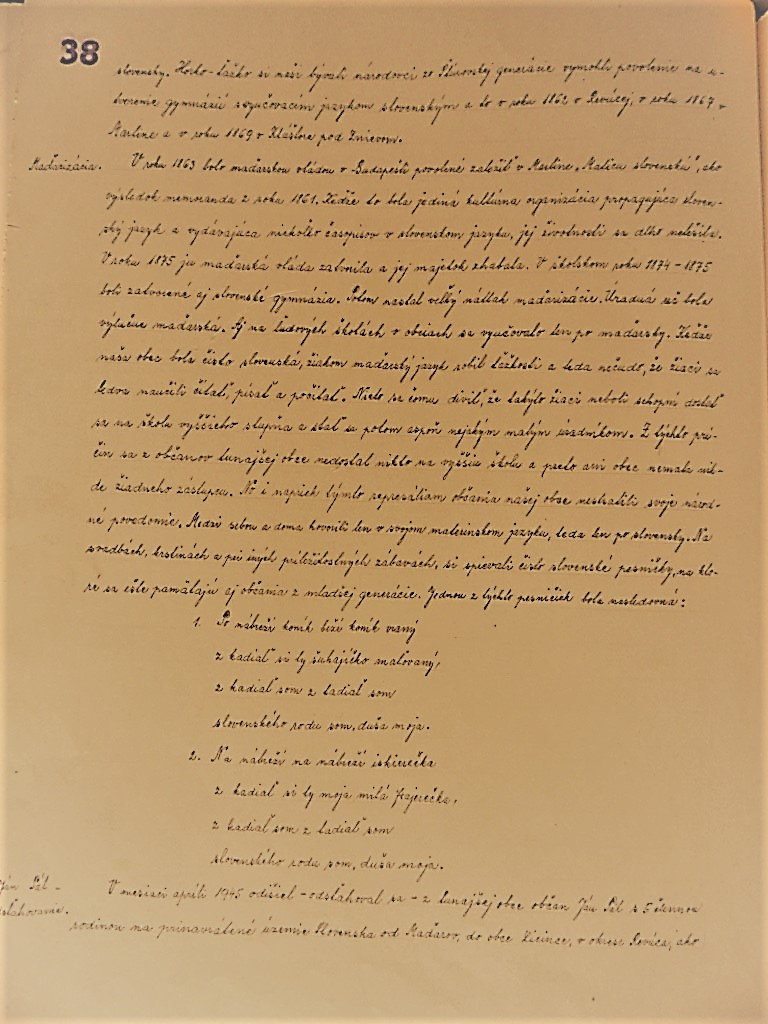 38
slovensky. Horko-ťažko si naši bývalí národovci zo Štúrovskej generácie vymohli povolenie na u-
tvorenie gymnázií s vyučovacím jazykom slovenským a to v roku 1862 v Revúcej, v roku 1867 v
Martine a v roku 1869 v Kláštore pod Znievom.
Maďarizácia. V roku 1863 bolo maďarskou vládou v Budapešti povolené založiť v Martine „Maticu slovenskú", ako
výsledok memoranda z roku 1861. Keďže to bola jediná kultúrna organizácia propagujúca sloven-
ský jazyk a vydávajúca niekoľko časopisov v slovenskom jazyku, jej životnosti sa dlho netešila.
V roku 1875 ju maďarská vláda zatvorila a jej majetok zhabala. V školskom roku 1874 - 1875
boli zatvorené aj slovenské gymnázia. Potom nastal veľký nátlak maďarizácie. Úradná reč bola
výlučne maďarská. Aj na ľudových školách v obciach sa vyučovalo len po maďarsky. Keďže
naša obec bola čisto slovenská, žiakom maďarský jazyk robil ťažkosti a teda nečudo, že žiaci sa
ledva naučili čítať, písať a počítať. Nieto sa čomu diviť, že takýto žiaci neboli schopní dostať
sa na školu vyššieho stupňa a stať sa potom aspoň nejakým malým úradníkom. Z týchto prí-
čin sa z občanov tunajšej obce nedostal nikto na vyššiu školu a preto ani obec nemala nik-
de žiadneho zástupcu. No i napriek týmto represáliam občania našej obce nestratili svoje národ-
né povedomie. Medzi sebou a doma hovorili len vo svojom materinskom jazyku, teda len po slovensky. Na
svadbách, krstinách a pri iných príležitostných zábavách, si spievali čisto slovenské pesničky, na kto-
ré sa ešte pamätajú aj občania z mladšej generácie. Jednou z týchto pesničiek bola nasledovná:
1. Po nábreží koník beží koník vraný
z kadiaľ si ty šuhajíčko maľovaný,
z kadiaľ som z tadiaľ som
slovenského rodu som, duša moja.
2. Na nábreží na nábreží iskierečka
z kadiaľ si ty moja milá frajerečka,
z kadiaľ som z tadiaľ som
slovenského rodu som, duša moja.
Ján Pál - V mesiaci apríli 1945 odišiel - odsťahoval sa - z tunajšej obce občan Ján Pál s 5 člennou
sťahovanie. rodinou na prinavrátené územie Slovenska od Maďarov, do obce Licince, v okrese Revúca, ako